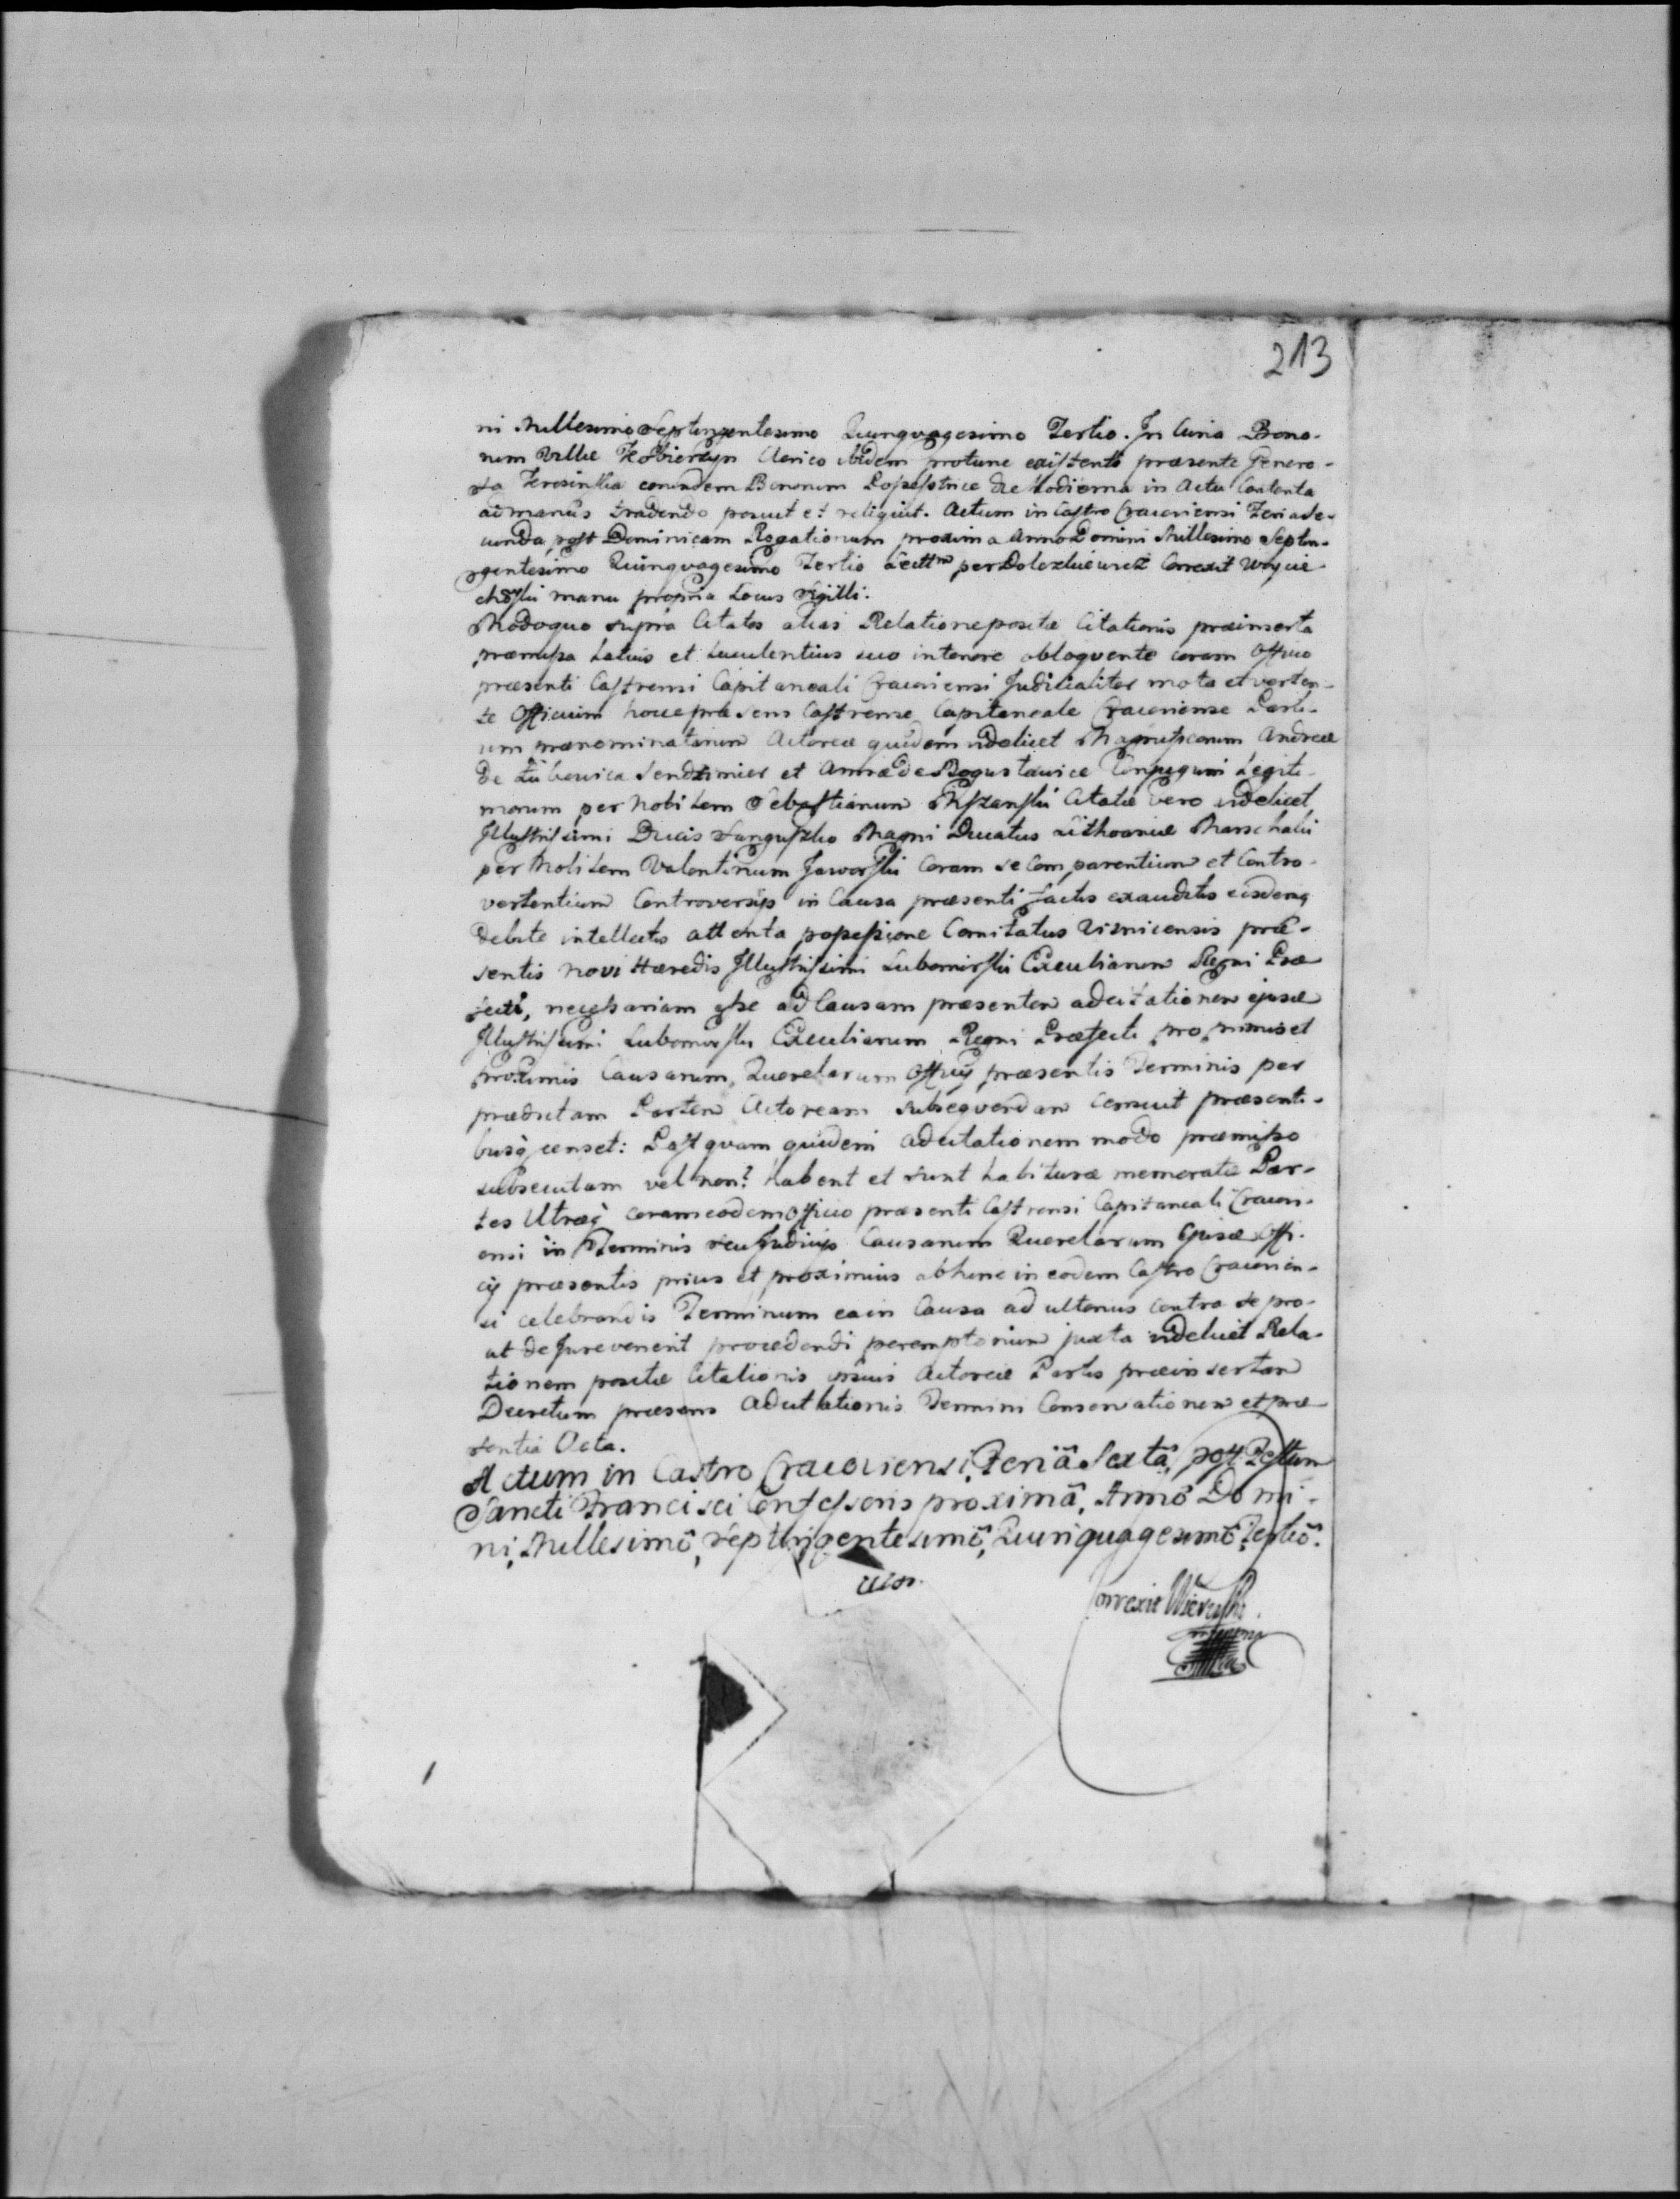 213
ni Millesimo Septingentesimo Quinquagesimo Tertio. In Curia Bono-
rum Villæ Kobierzyn Clerico ibidem protunc existenti præsente Genero-
sa eorundem Bonorum Possestrice die hodierna in Actu Contenta
ad manus tradendo posuit et reliquit. Actum in Castro Cracoviensi Feria Se-
cunda post Dominicam Rogationum proxima Anno Domini Millesimo Septin-
gentesimo Quinquagesimo Tertio Lectm per Correxit Woycie-
chowski manu propria Locus Sigilli:
Modoquo supra Citatos alias Relatione positæ Citationis præinserta
præmissa Latius et Luculentius suo in tenore obloquente coram Officio
præsenti Castrensi Capitaneali Cracoviensi Judicialiter mota et verten-
te Officium hocce præsens Castrense Capitaneale Cracoviense Parti-
um prænominatarum Actoreæ quidem videlicet Magnificorum Andreæ
de Lubowica Sendzimier et Annæ de Bogusławice Conjugum Legiti-
morum per Nobilem Sebastianum Citatæ vero videlicet
Illustrissimi Ducis Sanguszko Magni Ducatus Lithvaniæ Marschalii
per Nobilem Valentinum Jaworski Coram se Comparentium et Contro-
vertentium Controversijs in Causa præsenti factis exauditis eisdemq
debite intellectis attenta possessione Comitatus Visnicensis præ-
sentis novi Hæredis Illustrissimi Lubomirski Excubiarum Regni Præ
fecti, necessariam esse ad Causam præsentem adcitationem ejusd
Illustrissimi Lubomirski Excubiarum Regni Præfecti pro primis et
proximis Causarum Querelarum Officij præsentis Terminis per
prædictam Partem Actoream subsequendam censuit præsenti-
busq censet: Post quam quidem adcitationem modo præmisso
subsecutam vel non? Habent et sunt habituræ memoratæ Par-
tes Utræq coram eodem Officio præsenti Castrensi Capitaneali Cracovi-
ensi in Terminis seu Judicijs Causarum Querelarum Ejusd Offi-
cij præsentis prius et proximius abhinc in eodem Castro Cracovien-
si celebrandis Terminum ea in Causa ad ulterius contra se pro-
ut de Jure venerit procedendi peremptorium juxta videlicet Rela-
tionem positæ Citationis ipsius Actoreæ Partis præinsertam
Decretum præsens Adcitationis Termini Conservationem et præ
sentia Acta.
Actum in Castro Cracoviensi, Feriâ Sextâ, post Festum
Sancti Francisci Confessoris proximâ, Annô Domi-
ni, Millesimô, Septingentesimô, Quinquagesimô, Tertiô.
Correxit